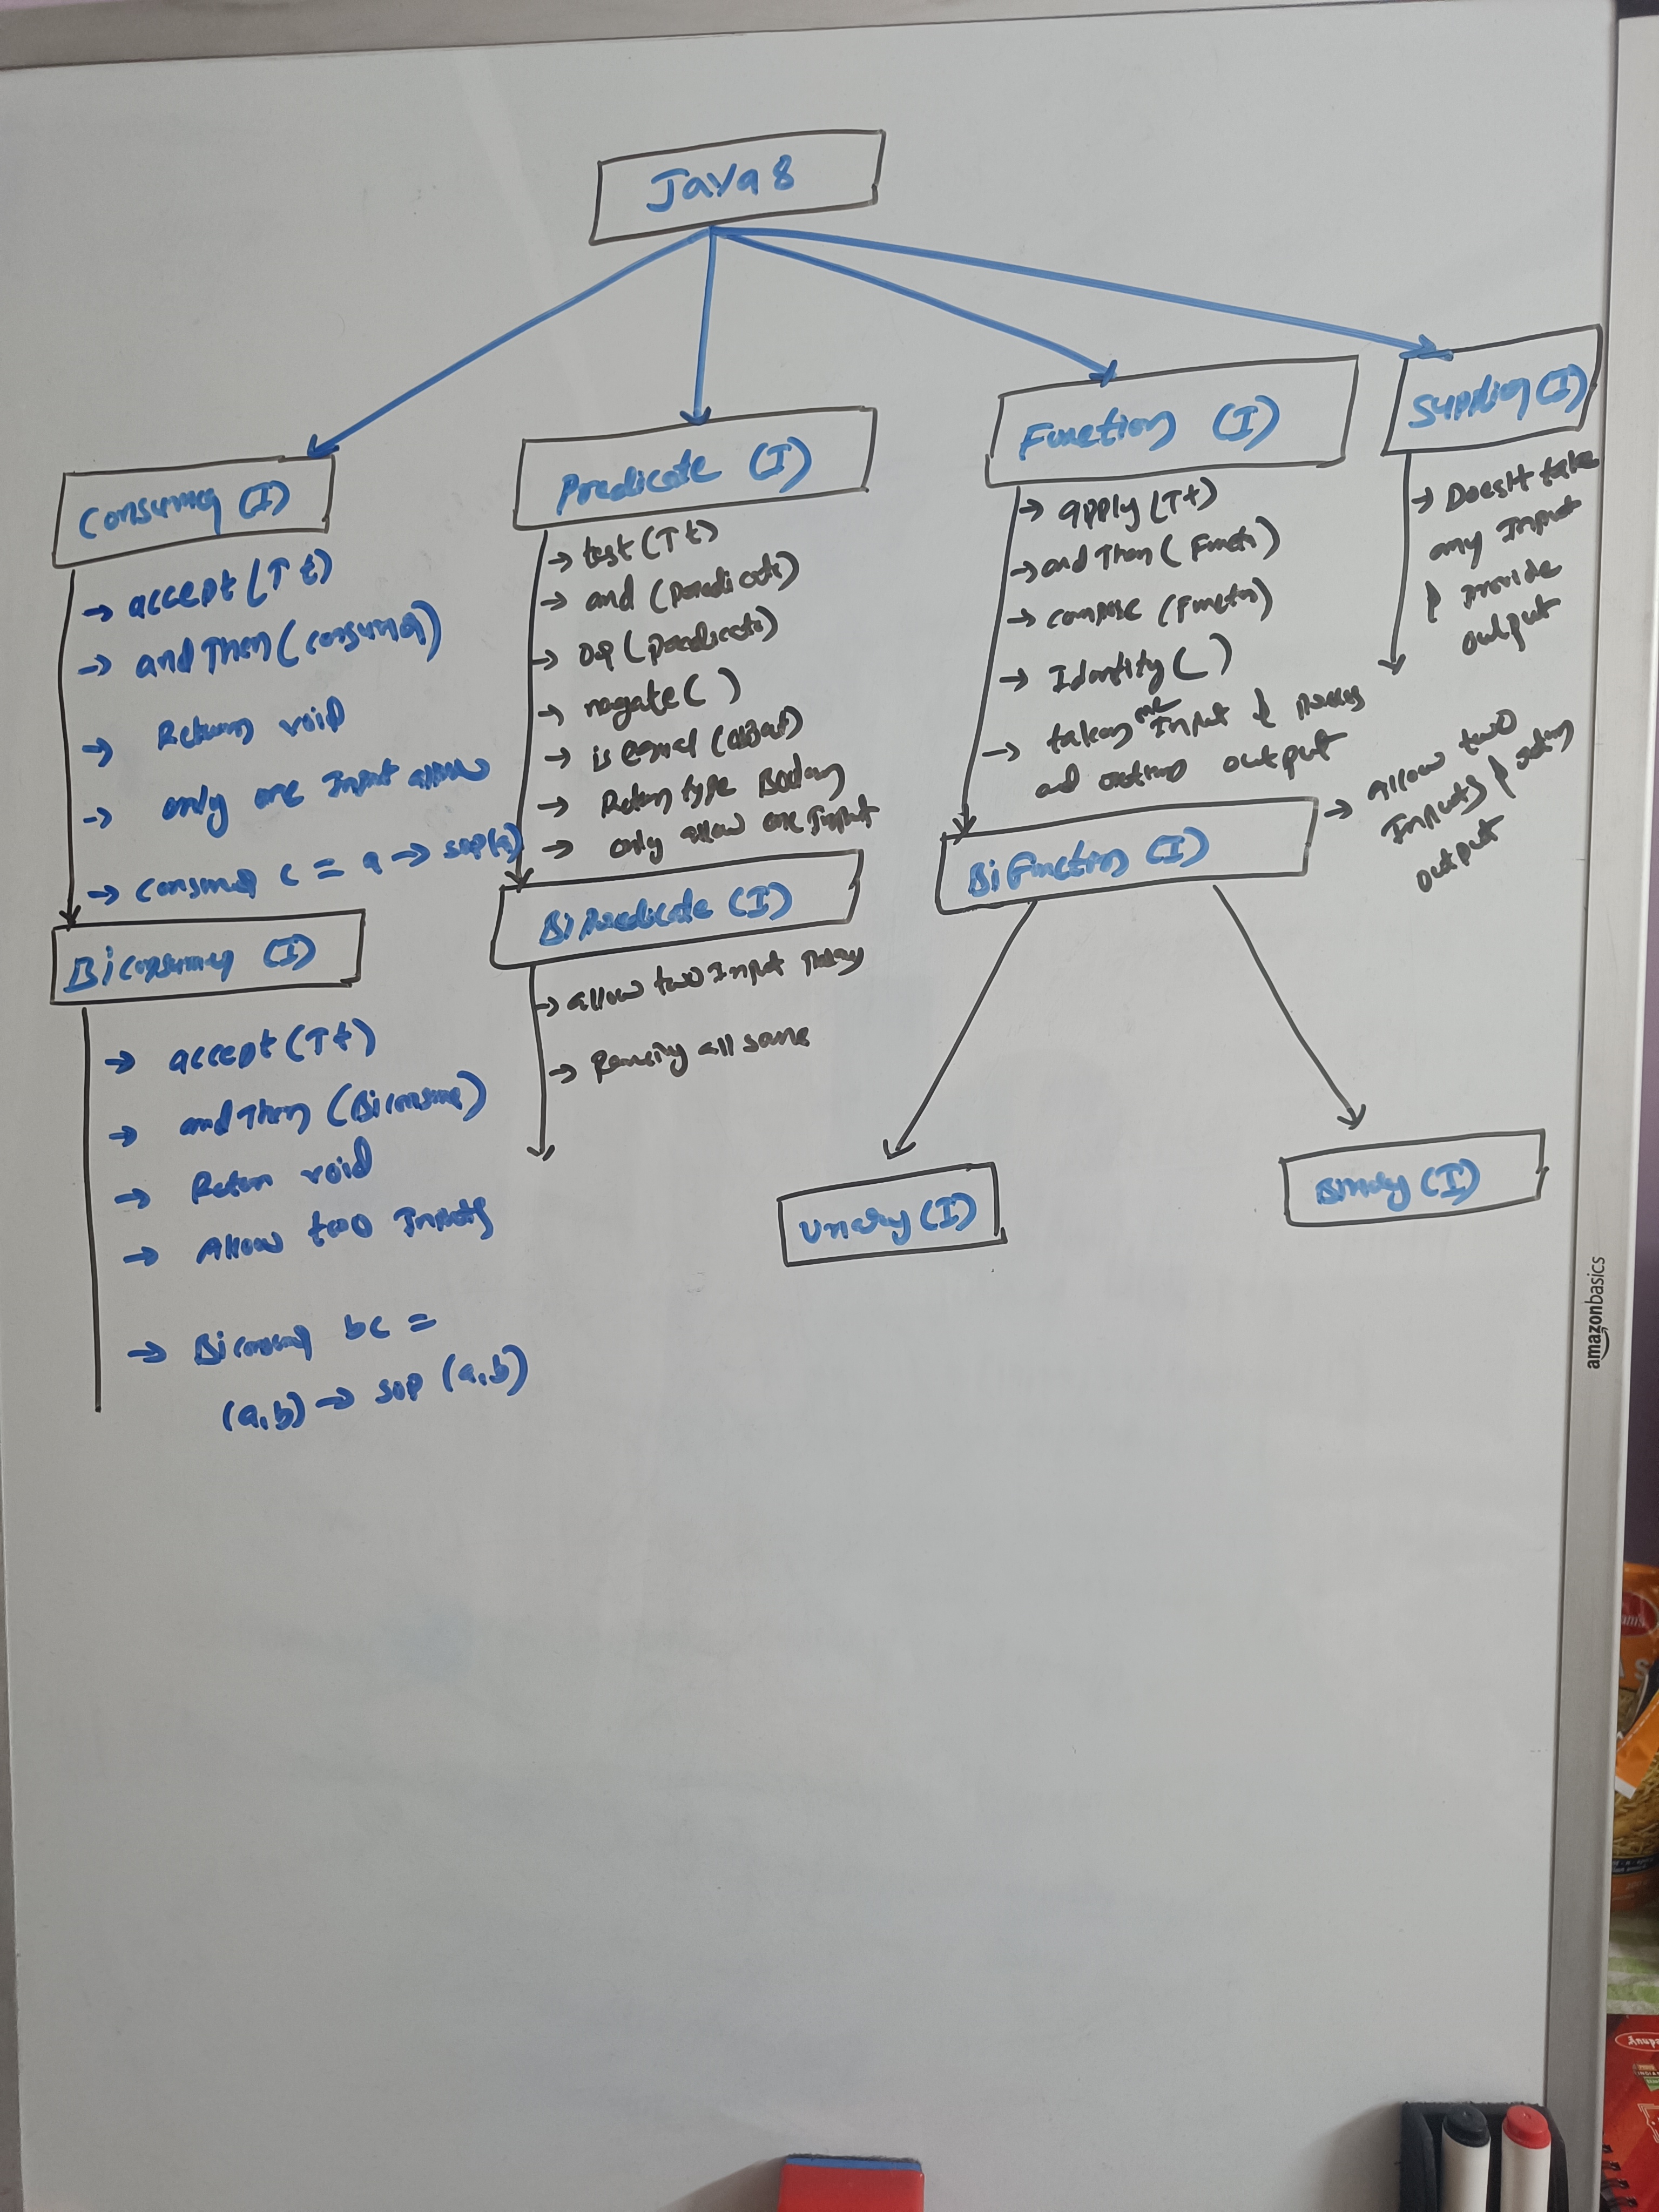 Java 8
Consumer (I)
→ accept (T t)
→ andThen (consumer)
→ Return void
→ only one Input allow
→ Consumer c = a → sop(a)
Biconsumer (I)
→ accept (T t)
→ andThen (Biconsumer)
→ Return void
→ Allow two Inputs
→ Biconsumer bc =
(a,b) → sop (a,b)
Predicate (I)
→ test (T t)
→ and (predicate)
→ or (predicate)
→ negate ( )
→ is equal (object)
→ Return type Boolean
→ only allow one Input
BiPredicate (I)
→ allow two Input
→ all same
Function (I)
→ apply (T t)
→ andThen (Functi)
→ compose (Functn)
→ Identity ( )
→ taken one Input & process
and return output
BiFunction (I)
→ allow two
Inputs & return
output
Unary (I)
Binary (I)
Supplier (I)
→ Doesn't take
any Input
& provide
output
amazonbasics